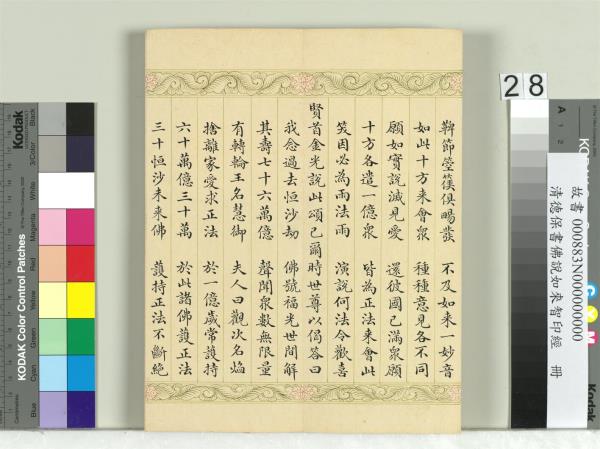 鞞節箜篌俱暢發 不及如來一妙音
如此十方來會衆 種種意見各不同
願如實說滅見愛 還彼國已滿衆願
十方各遣一億衆 皆為正法來會此
笑因必為雨法雨 演說何法令歡喜
賢首金光說此頌已爾時世尊以偈答曰
我念過去恒沙劫 佛號福光世間解
其壽七十六萬億 聲聞衆數無限量
有轉輪王名慧御 夫人曰觀次名焰
捨離家愛求正法 於一億歲常護持
六十萬億三十萬 於此諸佛護正法
三十恒沙未來佛 護持正法不斷絕
28
故書 000883N000000000
清德保書佛說如來智印經 冊
Kodak
KODAK Color Control Patches
Blue
Cyan
Green
Yellow
Red
Magenta
White
3/Color
Black
A 1 2
C Y M